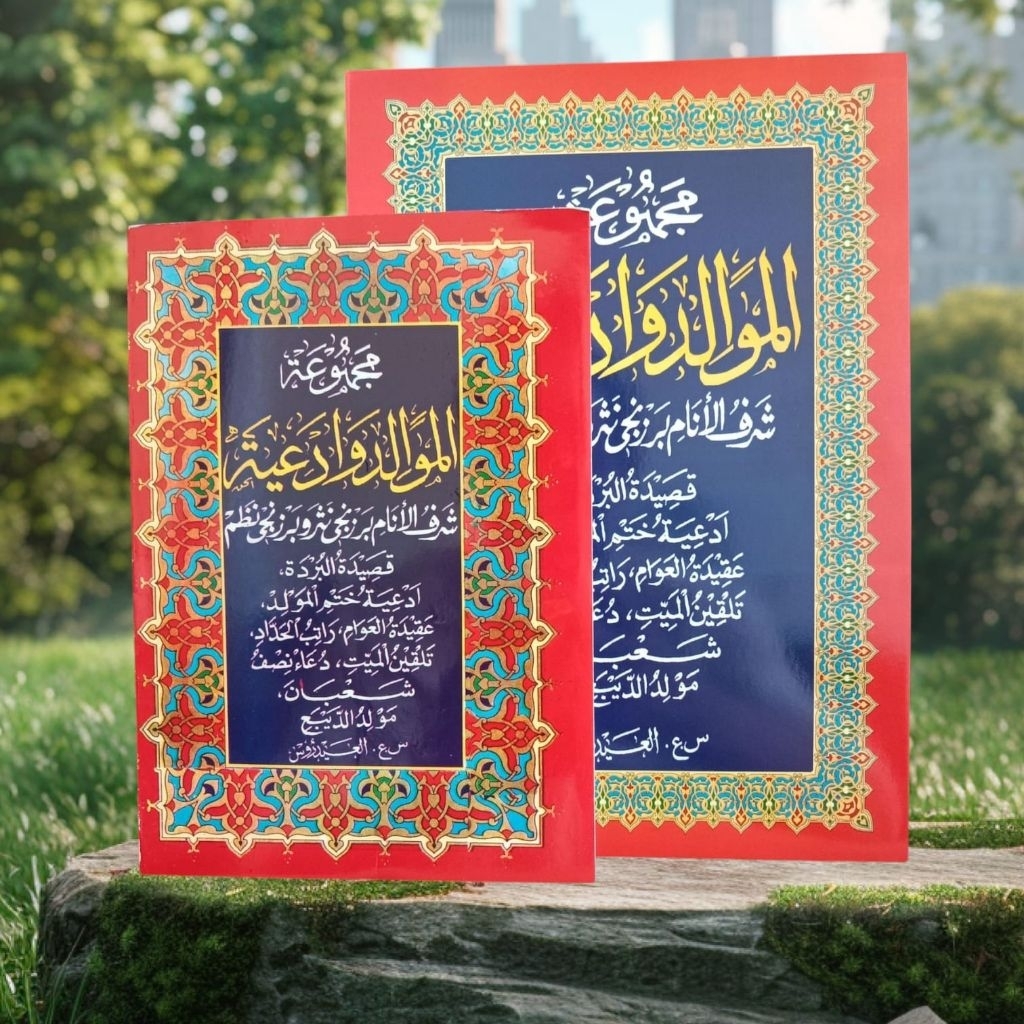 مجموعة
الموالد وادعية
شرف الأنام برزنجي نثر و برزنجي نظم
قصيدة البردة،
ادعية ختم المولد،
عقيدة العوام، راتب الحداد،
تلقين الميت، دعاء نصف
شعبان،
مولد الديبع
س.ع. العيدروس
مجموعة
الموالد واد
شرف الأنام برزنجي نثر
قصيدة البر
ادعية ختم الم
عقيدة العوام، رات
تلقين الميت، دعا
شعب
مولد الديب
س.ع. العيد